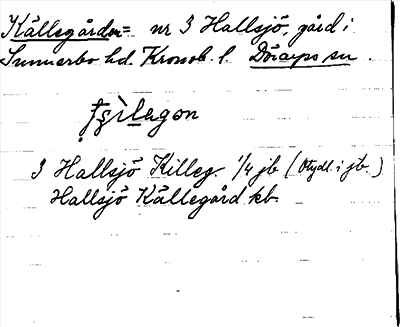 Källegården = nr 3 Hallsjö, gård i
Sunnerbo hd. Kronob. l. Dörarps sn.
ɟʂìlagon
3 Hallsjö Killeg. 1/4 jb (Otydl. i jb.)
Hallsjö Källegård kb.